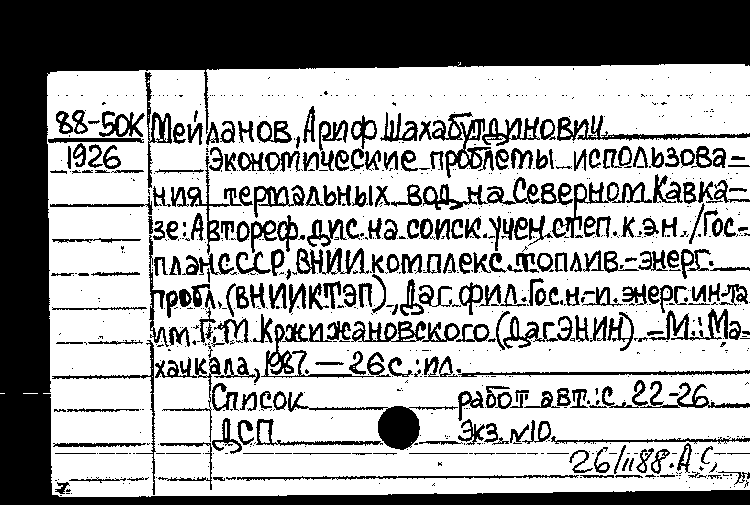 88-50К Мейланов, Ариф Шахабутдинович.
1926 Экономические проблемы использова-
ния термальных вод на Северном Кавка-
зе: Автореф. дис. на соиск. учен. степ. к.э.н. / Гос-
план СССР, ВНИИ комплекс. топлив.-энерг.
пробл. (ВНИИКТЭП), Даг. фил. Гос. н.-и. энерг. ин-та
им. Г.М. Кржижановского (ДагЭНИН) - М.: Ма-
хачкала, 1987. - 26 с.: ил.
Список работ авт.: с. 22-26.
ДСП. Экз. №10.
26/II88. А.С,